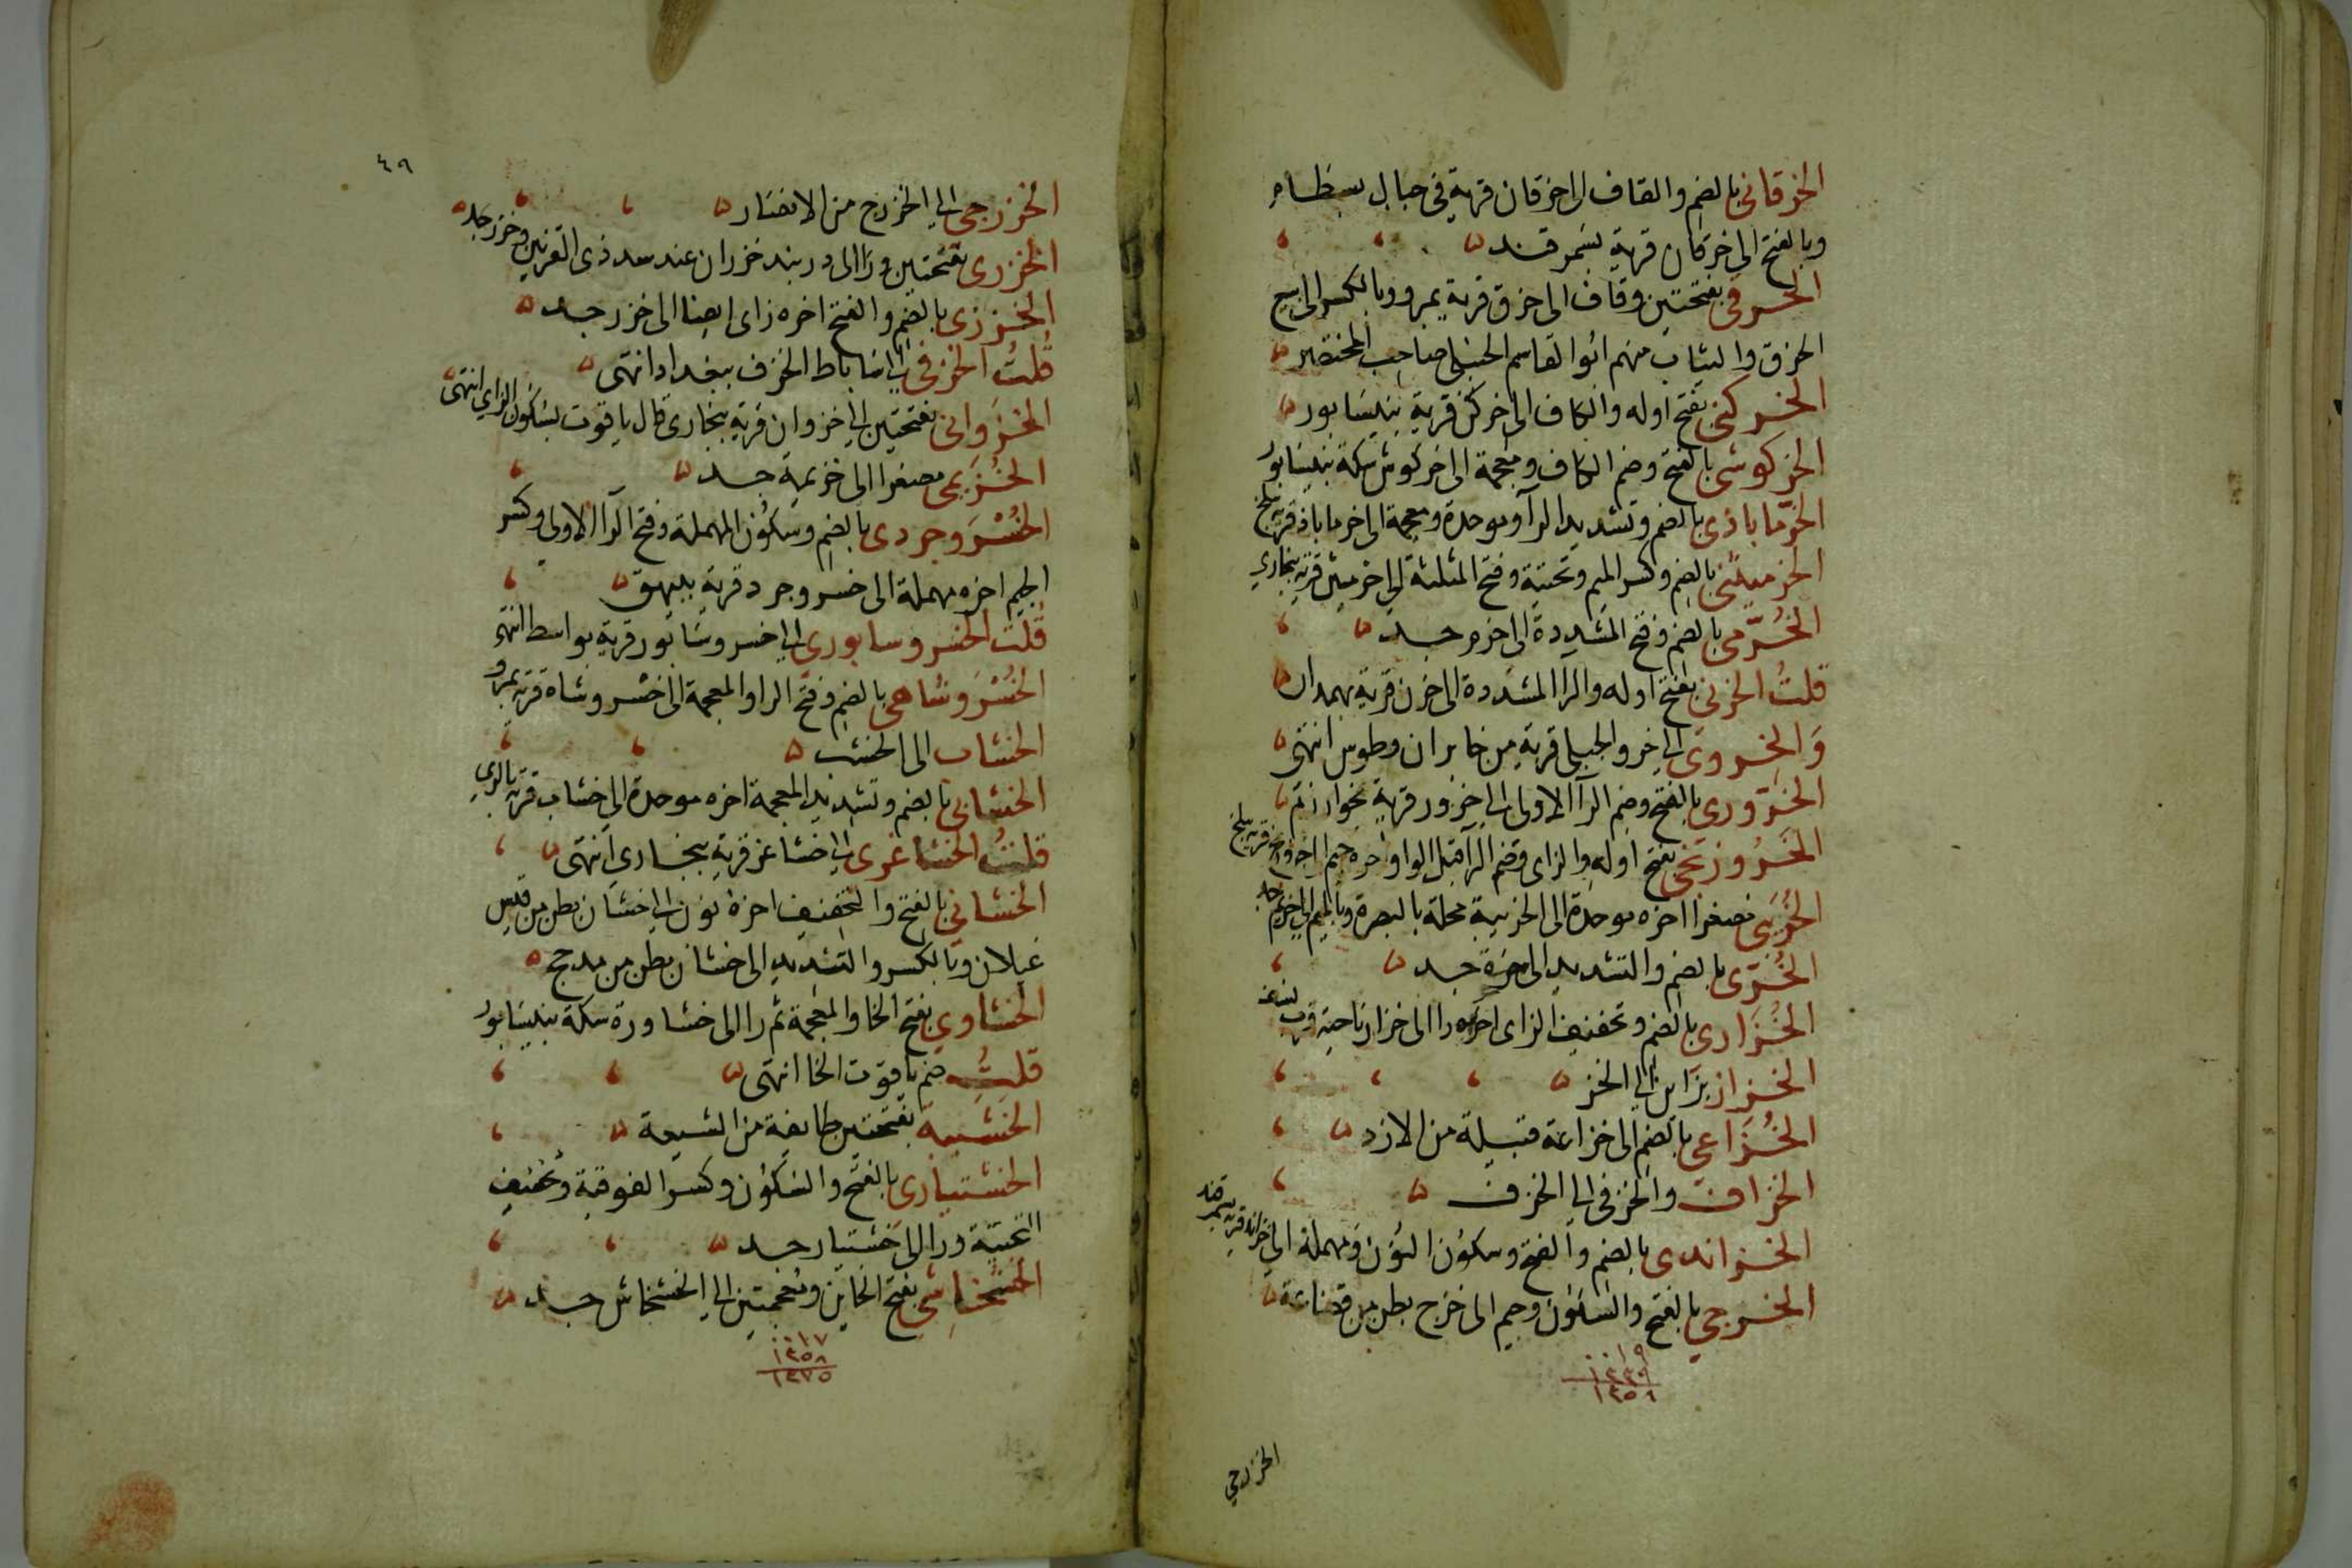 الخرقاني بالضم والقاف الى خرقان قرية في جبال بسطام
وبالفتح الى خرقان قرية بسمرقند
الخرقي بفتحتين وقاف الى خرق قرية بمرو وبالكسر الى بيع
الخرق والثياب منهم ابو القاسم الحنبلى صاحب المختصر
الخركني بفتح اوله والكاف الى خركن قرية بنيسابور
الخركوشي بالفتح وضم الكاف ومعجمة الى خركوش سكة بنيسابور
الخرماباذي بالضم وتشديد الرا وموحدة ومعجمة الى خرماباذ قرية ببلخ
الخرميثني بالضم وكسر الميم وتحتية وفتح المثلثة الى خرميثن قرية ببخارى
الخرمي بالضم وفتح المشددة الى خرم جد
قلت الخرني بفتح اوله والرا المشددة الى خرن قرية بهمدان
والخروي الى خرو الجبلى قرية من خابران وطوس انتهى
الخروري بالفتح وضم الرا الاولى الى خرور قرية بخوارزم
الخرورنجي بفتح اوله والزاى وضم الرا قبل الواو اخره جيم الى قرية ببلخ
الخريبي مصغرا اخره موحدة الى الخريبة محلة بالبصرة وبالميم الى خريم جد
الخري بالضم والتشديد الى خرة جد
الخزاري بالضم وتخفيف الزاى اخره را الى خزار ناحية قرب نسف
الخزاز بزاين الى الخز
الخزاعي بالضم الى خزاعة قبيلة من الازد
الخزاف والخزفى الى الخزف
الخزاندى بالضم والفتح وسكون النون ومهملة الى خزاند قرية بسمرقند
الخزرجي بالفتح والسكون وجيم الى خزرج بطن من قضاعة
١٩
١٣٣٩
١٣٥٨
الخزرجي
٤٩
الخزرجي الى الخزرج من الانصار
الخزري بفتحتين ورا الى دربند خزران عند سد ذى القرنين وخزر جد
الخززى بالضم والفتح اخره زاى ايضا الى خزز جد
قلت الخزفي الى ساباط الخزف ببغداد انتهى
الخزواني بفتحتين الى خزوان قرية ببخارى قال ياقوت بسكون الزاي انتهى
الخزيمي مصغرا الى خزيمة جد
الخسروجردى بالضم وسكون المهملة وفتح الرا الاولى وكسر
الجيم اخره مهملة الى خسروجرد قرية ببيهق
قلت الخسروسابوري الى خسروسابور قرية بواسط انتهى
الخسروشاهي بالضم وفتح الرا والمعجمة الى خسروشاه قرية بمرو
الخشاب الى الخشب
الخشابي بالضم وتشديد المعجمة اخره موحدة الى خشاب قرية بالري
قلت الخشاغري الى خشاغر قرية ببخارى انتهى
الخشاني بالفتح والتخفيف اخره نون الى خشان بطن من قيس
غيلان وبالكسر والتشديد الى خشان بطن من مدحج
الخشاوري بفتح الخا والمعجمة ثم را الى خشاورة سكة بنيسابور
قلت ضم ياقوت الخا انتهى
الخشبية بفتحتين طايفة من الشيعة
الخشتيارى بالفتح والسكون وكسر الفوقية وتخفيف
التحتية ورا الى خشتيار جد
الخشخاشي بفتح الخاين ومعجمتين الى الخشخاش جد
١٧
١٣٥٨
١٣٧٥